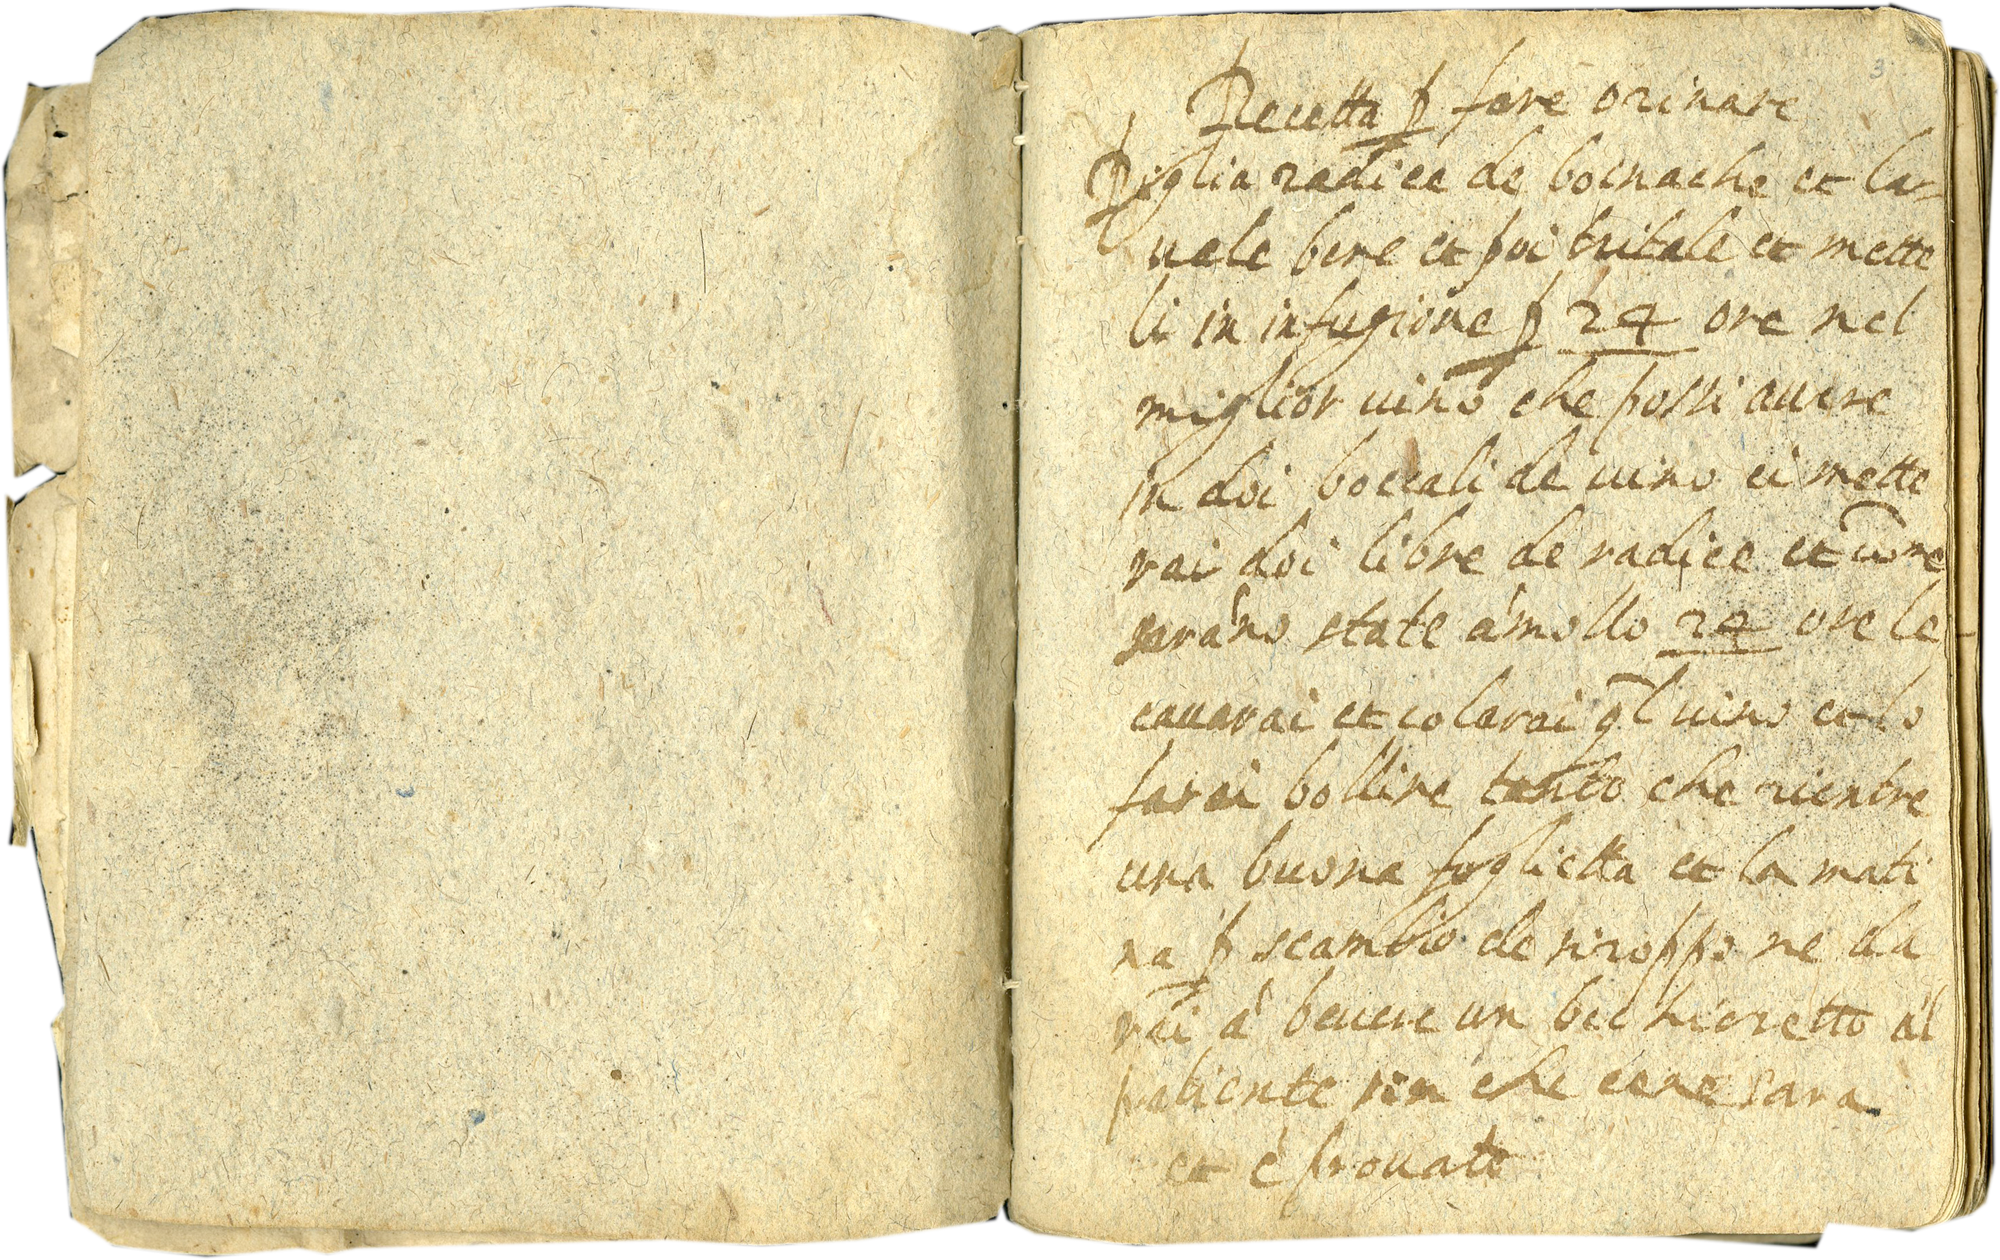 3
Recetta p fare orinare
Piglia radice de boinache et la=
vele bene et poi tritale et mette
li in infugione p 24 ore nel
miglior vino che possi avere
in doi boccali de vino ci mette
rai doi libre de radice et come
saranno state a mollo 24 ore le
cavarai et colarai ql vino et lo
farai bollire tanto che rientre
una buona foglietta et la mati
na p scambio de siroppo ne da
rai à bevere un bichieretto al
patiente sin che cene sara
et è provato